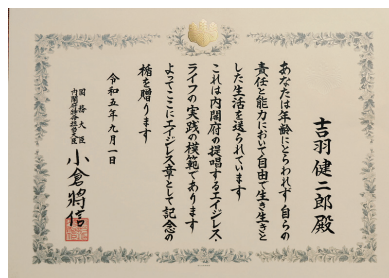 吉羽健二郎殿
あなたは年齢にとらわれず自らの
責任と能力において自由で生き生きと
した生活を送られています
これは内閣府の提唱するエイジレス・
ライフの実践の模範であります
よってここにエイジレス章として記念の
楯を贈ります
令和五年九月一日
国務大臣
内閣府特命担当大臣
小倉將信